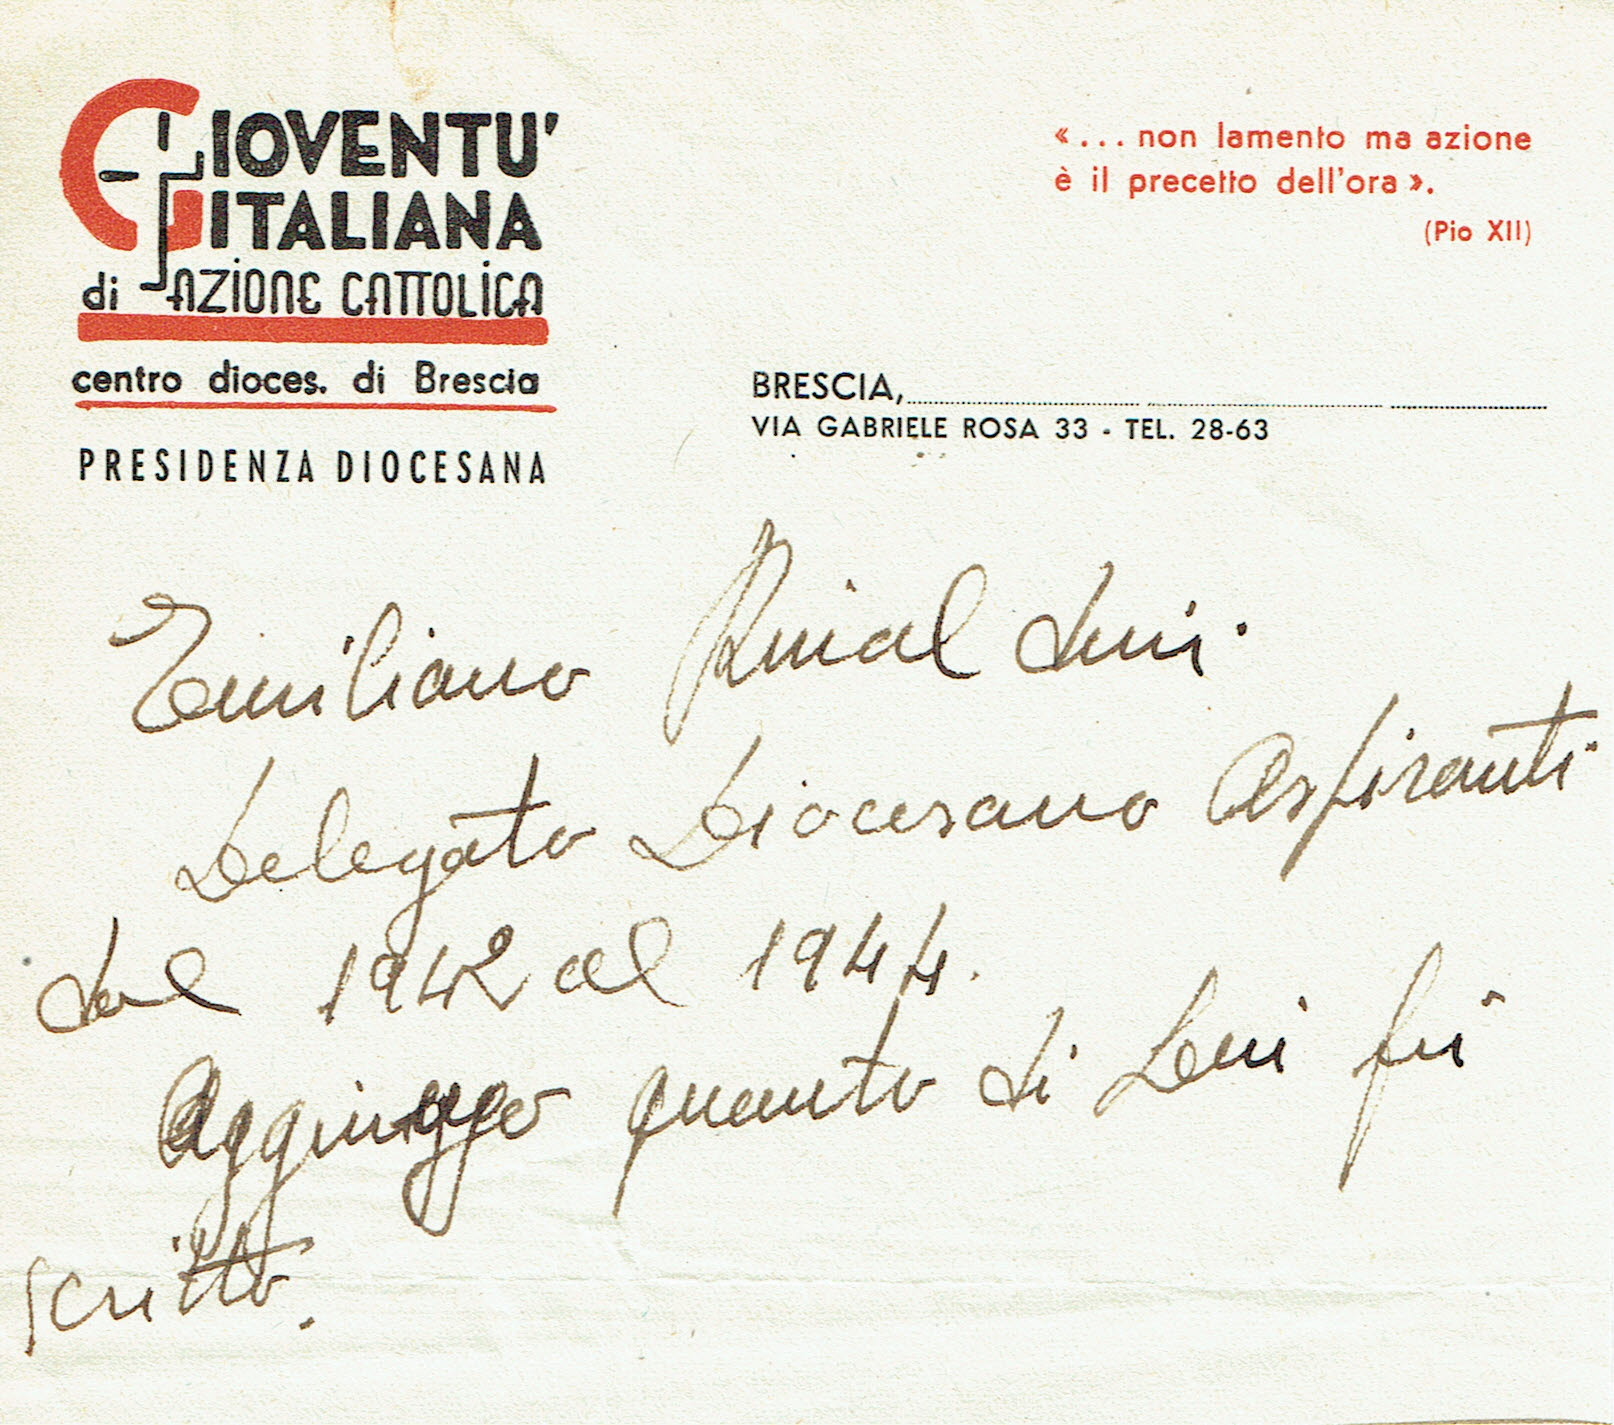 GIOVENTU'
ITALIANA
di AZIONE CATTOLICA
centro dioces. di Brescia
PRESIDENZA DIOCESANA
«... non lamento ma azione
è il precetto dell'ora».
(Pio XII)
BRESCIA,
VIA GABRIELE ROSA 33 - TEL. 28-63
Emiliano Rinaldini.
Delegato Diocesano Aspiranti
dal 1942 al 1944.
Aggiungo quanto di Lui fù
scritto.